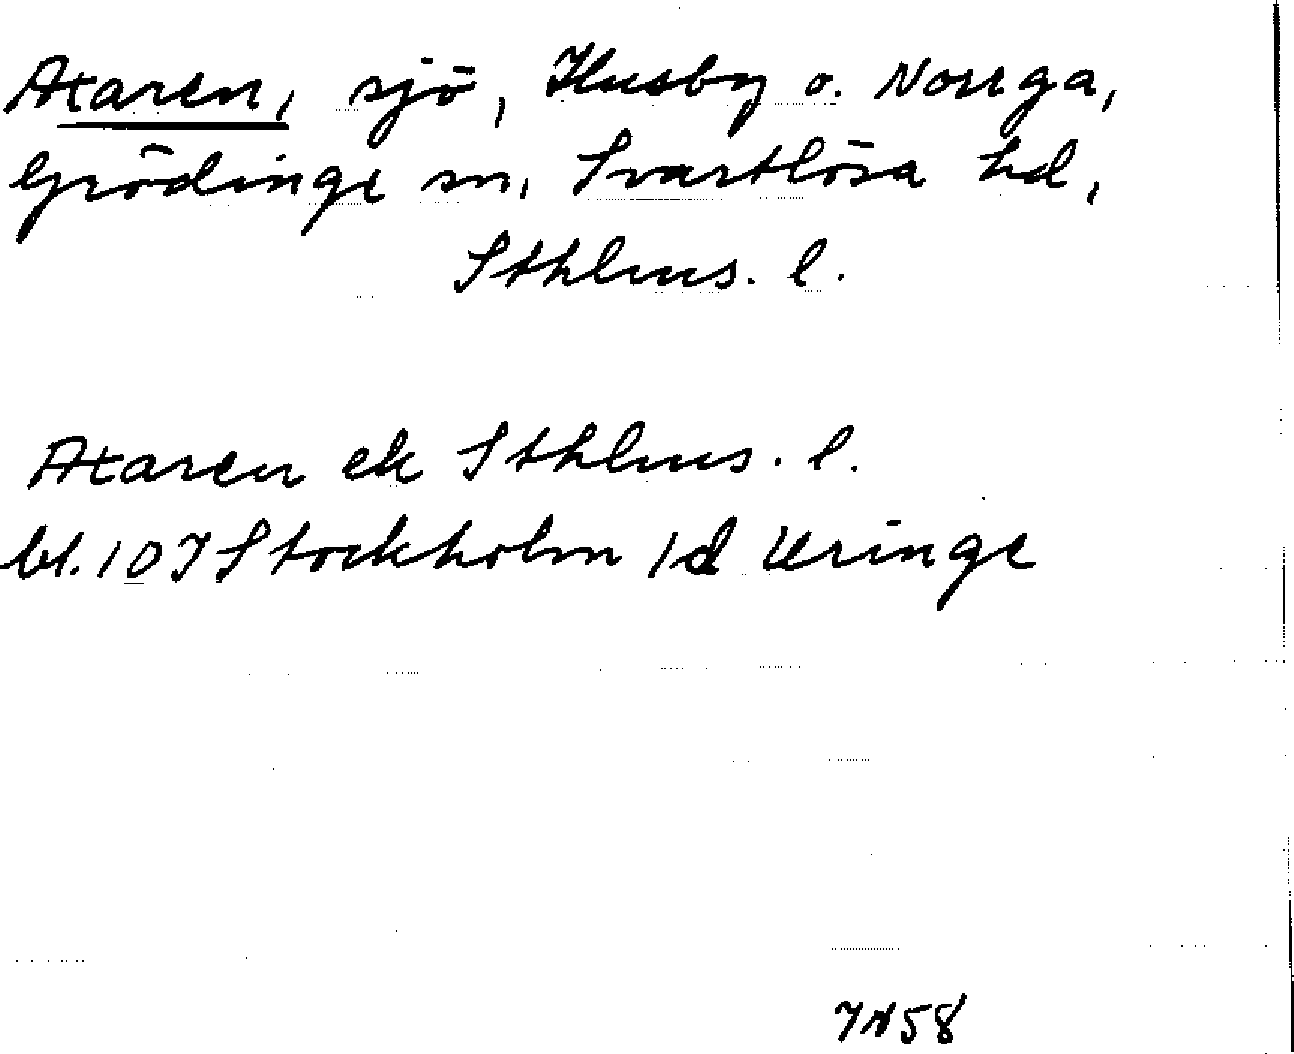 Axaren, sjö, Husby o. Norrga,
Grödinge sn, Svartlösa hd,
Sthlms. l.
Axaren ek Sthlms. l.
bl. 10I Stockholm
58